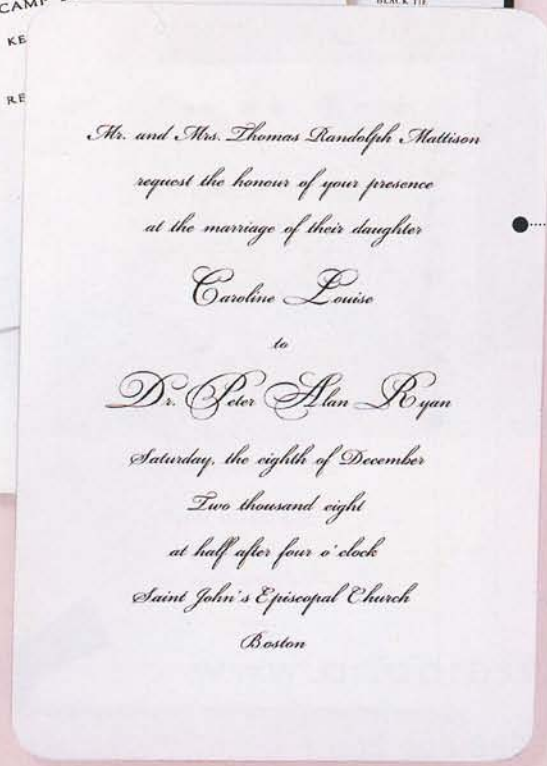 CAMP
KE
RE
BLACK TIE
Mr. and Mrs. Thomas Randolph Mattison
request the honour of your presence
at the marriage of their daughter
Caroline Louise
to
Dr. Peter Alan Ryan
Saturday, the eighth of December
Two thousand eight
at half after four o'clock
Saint John's Episcopal Church
Boston